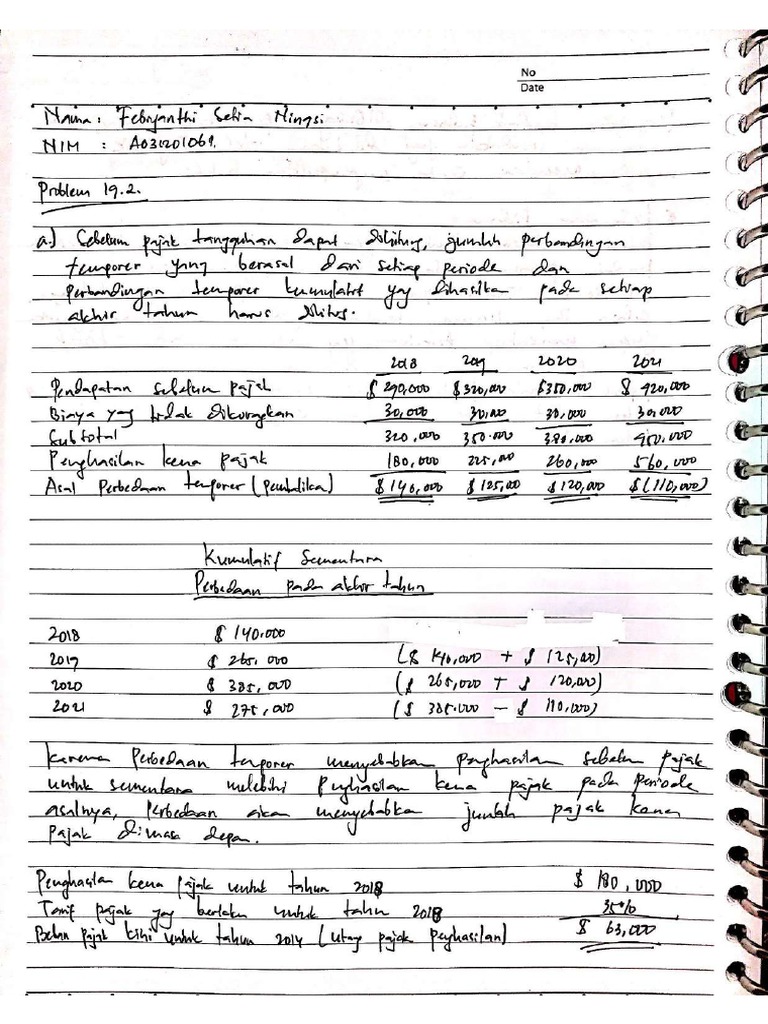 No
Date
Nama : Febryanthi Setia Ningsi
NIM : A031201069
Problem 19.2.
a.) Sebelum pajak tangguhan dapat dihitung, jumlah perbandingan
temporer yang berasal dari setiap periode dan
perbandingan temporer kumulatif yg dihasilka pada setiap
akhir tahun harus dihitug.
2018 2019 2020 2021
Pendapatan sebelum pajak $ 290,000 $ 320,000 $ 350,000 $ 420,000
Biaya yg tidak dikurangkan 30,000 30,000 30,000 30,000
Subtotal 320,000 350.000 380,000 450,000
Penghasilan kena pajak 180,000 225,000 260,000 560,000
Asal Perbedaan temporer (pembalika) $ 140,000 $ 125,000 $ 120,000 $ (110,000)
Kumulatif Sementara
Perbedaan pada akhir tahun
2018 $ 140.000
2019 $ 265.000 ($ 140,000 + $ 125,000)
2020 $ 385,000 ($ 265,000 + $ 120,000)
2021 $ 275,000 ($ 385.000 - $ 110,000)
Karena Perbedaan temporer menyebabkan penghasilan sebelum pajak
untuk sementara melebihi penghasilan kena pajak pada periode
asalnya, perbedaan akan menyebabkan jumlah pajak kena
pajak dimasa depan.
Penghasilan kena pajak untuk tahun 2018 $ 180,000
Tarif pajak yg berlaku untuk tahun 2018 35%
Beban pajak kini untuk tahun 2014 (utang pajak penghasilan) $ 63,000